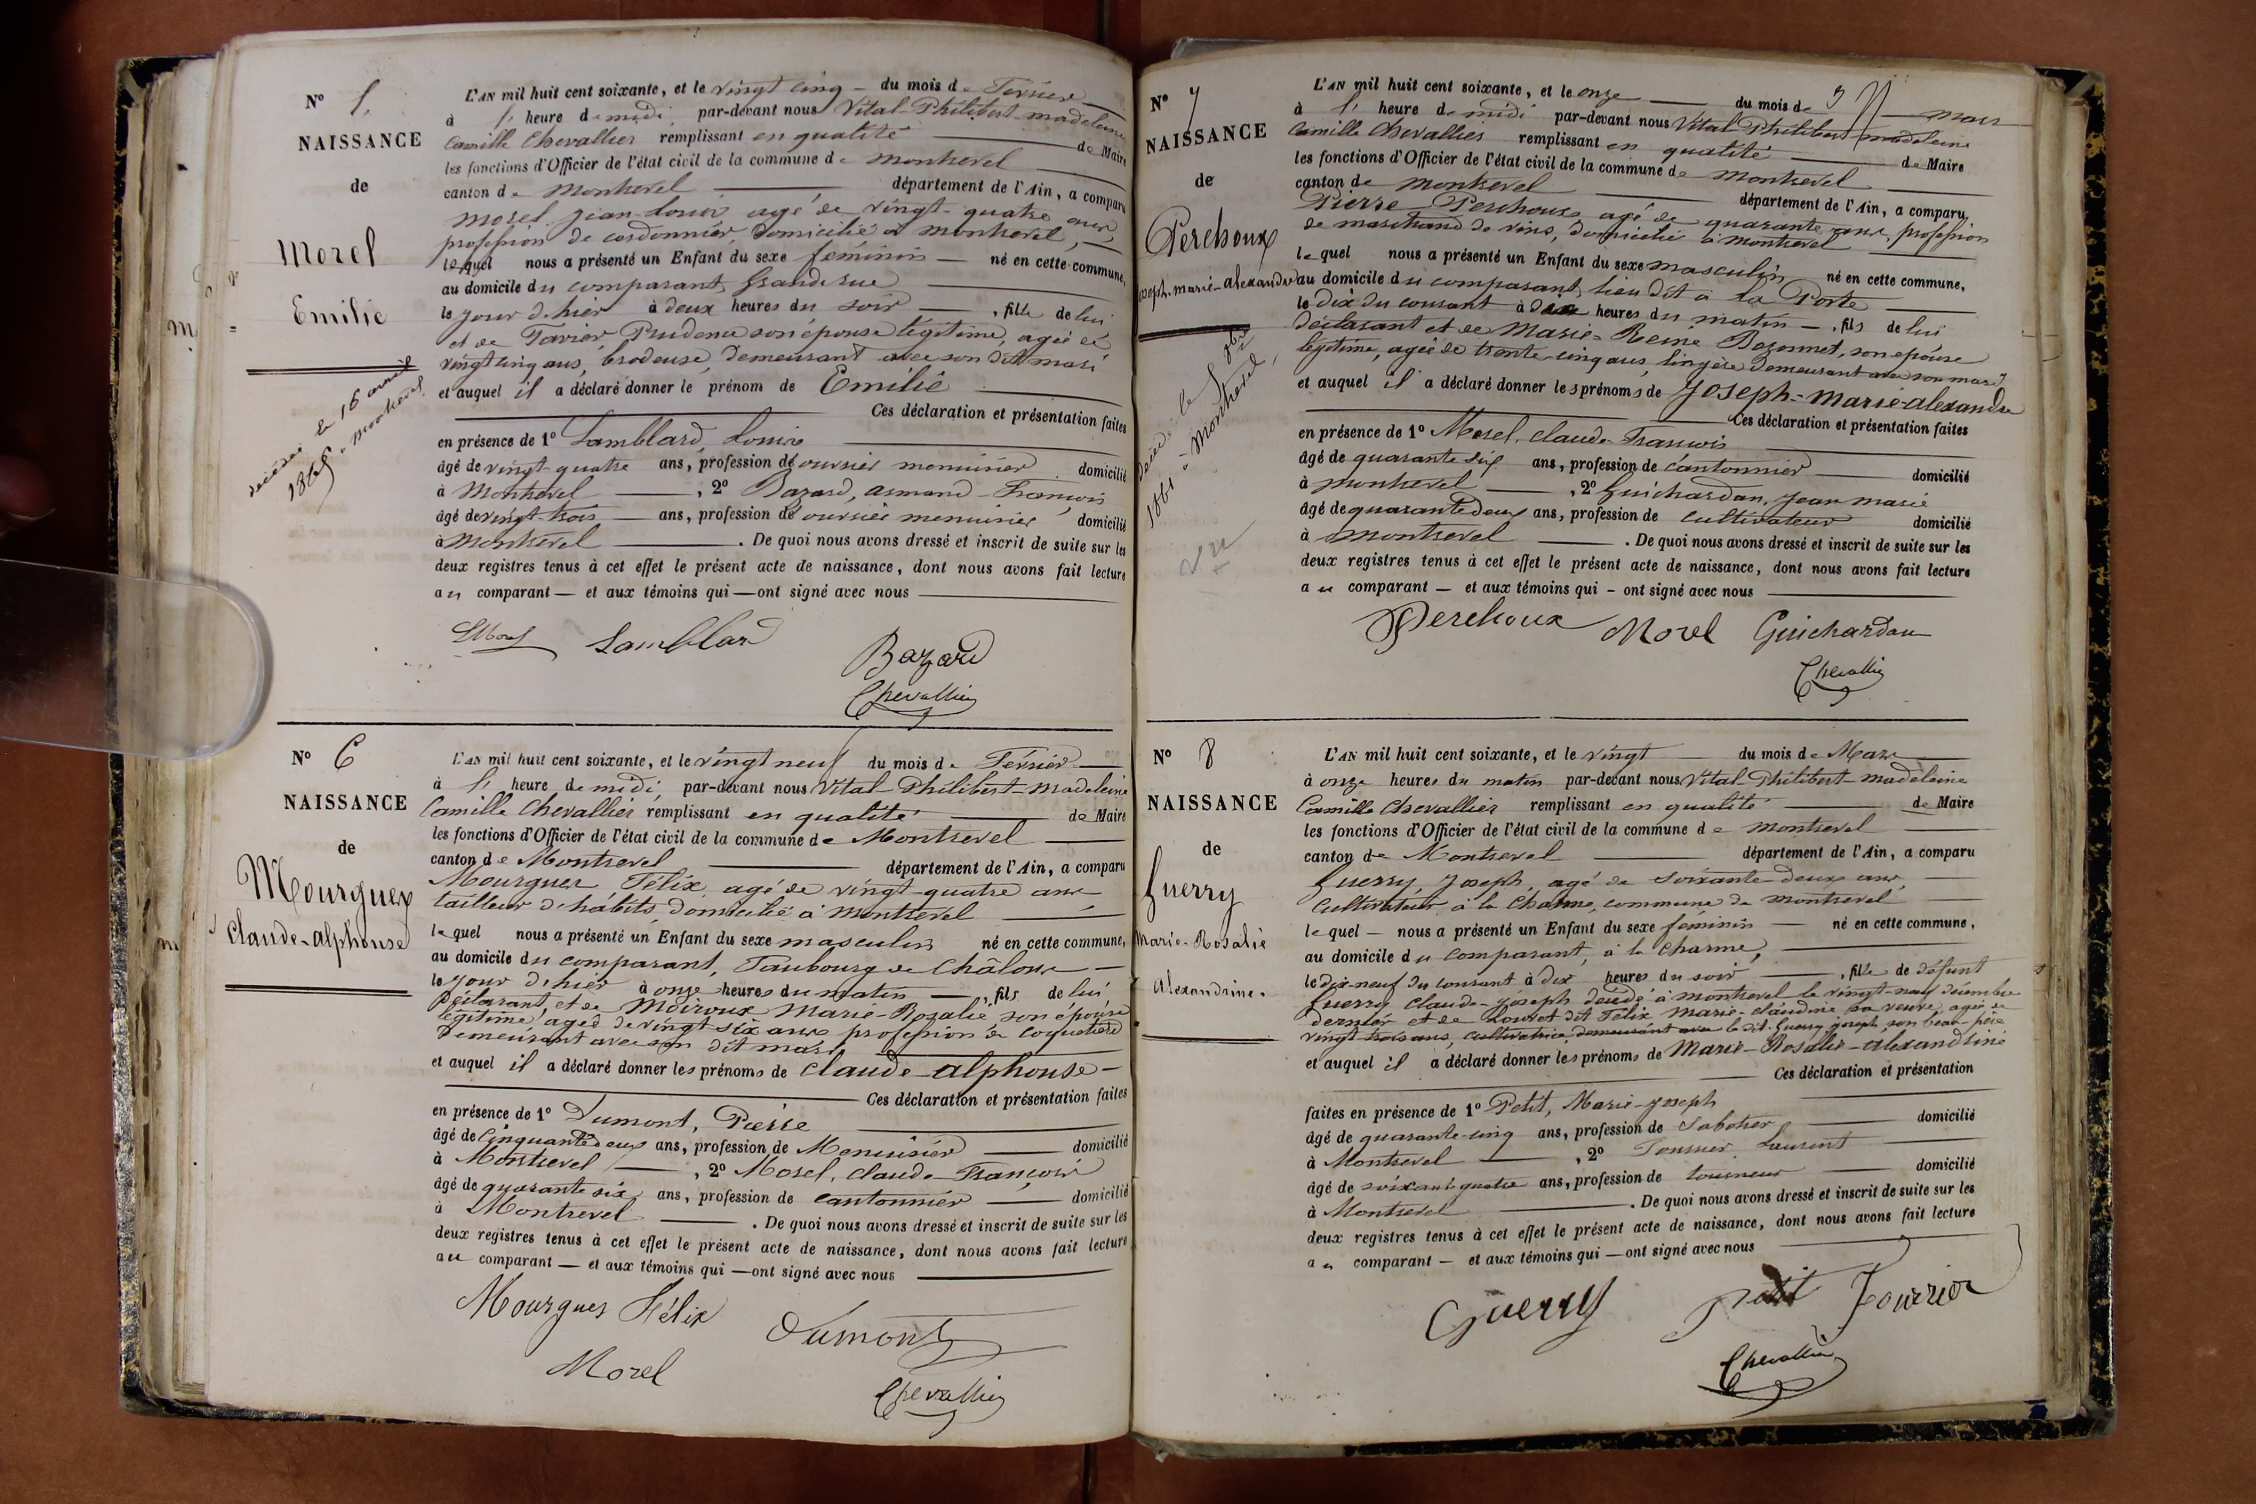 N° 5
NAISSANCE
de
Morel
Emilie
décédée le 16 avril
à Montrevel
L'AN mil huit cent soixante, et le vingt cinq du mois de Février
à 1 heure de midi, par-devant nous Vital-Philibert-Madeleine
Camille Chevallier remplissant en qualité de Maire
les fonctions d'Officier de l'état civil de la commune de Montrevel
canton de Montrevel département de l'Ain, a comparu
Morel Jean-Louis agé de vingt-quatre ans,
profession de cordonnier, domicilié à Montrevel,
lequel nous a présenté un Enfant du sexe féminin né en cette commune,
au domicile du comparant, Grande rue
le jour d'hier à deux heures du soir, fille de lui
et de Favier, Prudence son épouse légitime, agée de
vingt cinq ans, brodeuse, demeurant avec son dit mari
et auquel il a déclaré donner le prénom de Emilie
Ces déclaration et présentation faites
en présence de 1° Lamblard, Louis
âgé de vingt-quatre ans, profession d'ouvrier menuisier domicilié
à Montrevel, 2° Bazard, Armand-François
âgé de vingt-trois ans, profession d'ouvrier menuisier domicilié
à Montrevel. De quoi nous avons dressé et inscrit de suite sur les
deux registres tenus à cet effet le présent acte de naissance, dont nous avons fait lecture
au comparant — et aux témoins qui — ont signé avec nous
Lamblard
Bazard
Chevallier
N° 6
NAISSANCE
de
Mourgues
Claude-Alphonse
L'AN mil huit cent soixante, et le vingt neuf du mois de Février
à 1 heure de midi, par-devant nous Vital-Philibert-Madeleine
Camille Chevallier remplissant en qualité de Maire
les fonctions d'Officier de l'état civil de la commune de Montrevel
canton de Montrevel département de l'Ain, a comparu
Mourgues Félix agé de vingt-quatre ans
tailleur d'habits domicilié à Montrevel
lequel nous a présenté un Enfant du sexe masculin né en cette commune,
au domicile du comparant, Faubourg de Châlons
le jour d'hier à onze heures du matin, fils de lui
déclarant, et de Moiroux Marie-Rosalie son épouse
légitime, agée de vingt six ans profession de coquetière
demeurant avec son dit mari
et auquel il a déclaré donner les prénoms de Claude-Alphonse
Ces déclaration et présentation faites
en présence de 1° Dumont, Pierre
âgé de cinquante deux ans, profession de Menuisier domicilié
à Montrevel, 2° Morel, Claude-François
âgé de quarante six ans, profession de cantonnier domicilié
à Montrevel. De quoi nous avons dressé et inscrit de suite sur les
deux registres tenus à cet effet le présent acte de naissance, dont nous avons fait lecture
au comparant — et aux témoins qui — ont signé avec nous
Mourgues Félix
Dumont
Morel
Chevallier
N° 7
NAISSANCE
de
Perchoux
Joseph-Marie-Alexandre
décédé le
1861 à Montrevel,
L'AN mil huit cent soixante, et le onze du mois de Mars
à 1 heure de midi par-devant nous Vital-Philibert-Madeleine
Camille Chevallier remplissant en qualité de Maire
les fonctions d'Officier de l'état civil de la commune de Montrevel
canton de Montrevel département de l'Ain, a comparu
Pierre Perchoux agé de quarante ans, profession
de marchand de vins, domicilié à Montrevel
lequel nous a présenté un Enfant du sexe masculin né en cette commune,
au domicile du comparant, lieu dit à la Porte
le dix du courant à deux heures du matin, fils de lui
déclarant et de Marie-Reine Bozonnet, son épouse
légitime, agée de trente-cinq ans, lingère demeurant avec son mari
et auquel il a déclaré donner les prénoms de Joseph-Marie-Alexandre
Ces déclaration et présentation faites
en présence de 1° Morel, Claude-François
âgé de quarante six ans, profession de cantonnier domicilié
à Montrevel, 2° Guichardan, Jean Marie
âgé de quarante deux ans, profession de cultivateur domicilié
à Montrevel. De quoi nous avons dressé et inscrit de suite sur les
deux registres tenus à cet effet le présent acte de naissance, dont nous avons fait lecture
au comparant — et aux témoins qui - ont signé avec nous
Perchoux Morel Guichardan
Chevallier
N° 8
NAISSANCE
de
Guerry
Marie-Rosalie
Alexandrine.
L'AN mil huit cent soixante, et le vingt du mois de Mars
à onze heures du matin par-devant nous Vital-Philibert-Madeleine
Camille Chevallier remplissant en qualité de Maire
les fonctions d'Officier de l'état civil de la commune de Montrevel
canton de Montrevel département de l'Ain, a comparu
Guerry, Joseph, agé de soixante deux ans,
cultivateur à la Charme, commune de Montrevel
lequel — nous a présenté un Enfant du sexe féminin né en cette commune,
au domicile du comparant, à la Charme,
le dix-neuf du courant à dix heures du soir, fille de défunt
Guerry Claude-Joseph décédé à Montrevel le vingt-neuf décembre
dernier et de Louvet dit Félix Marie-Claudine sa veuve, agée de
vingt-trois ans, cultivatrice, demeurant avec le dit Guerry Joseph son beau-père
et auquel il a déclaré donner les prénoms de Marie-Rosalie-Alexandrine
Ces déclaration et présentation
faites en présence de 1° Petit, Marie-Joseph
âgé de quarante-cinq ans, profession de sabotier domicilié
à Montrevel, 2° Fournier Laurent
âgé de soixante quatre ans, profession de tourneur domicilié
à Montrevel. De quoi nous avons dressé et inscrit de suite sur les
deux registres tenus à cet effet le présent acte de naissance, dont nous avons fait lecture
au comparant — et aux témoins qui — ont signé avec nous
Guerry Petit
Chevallier